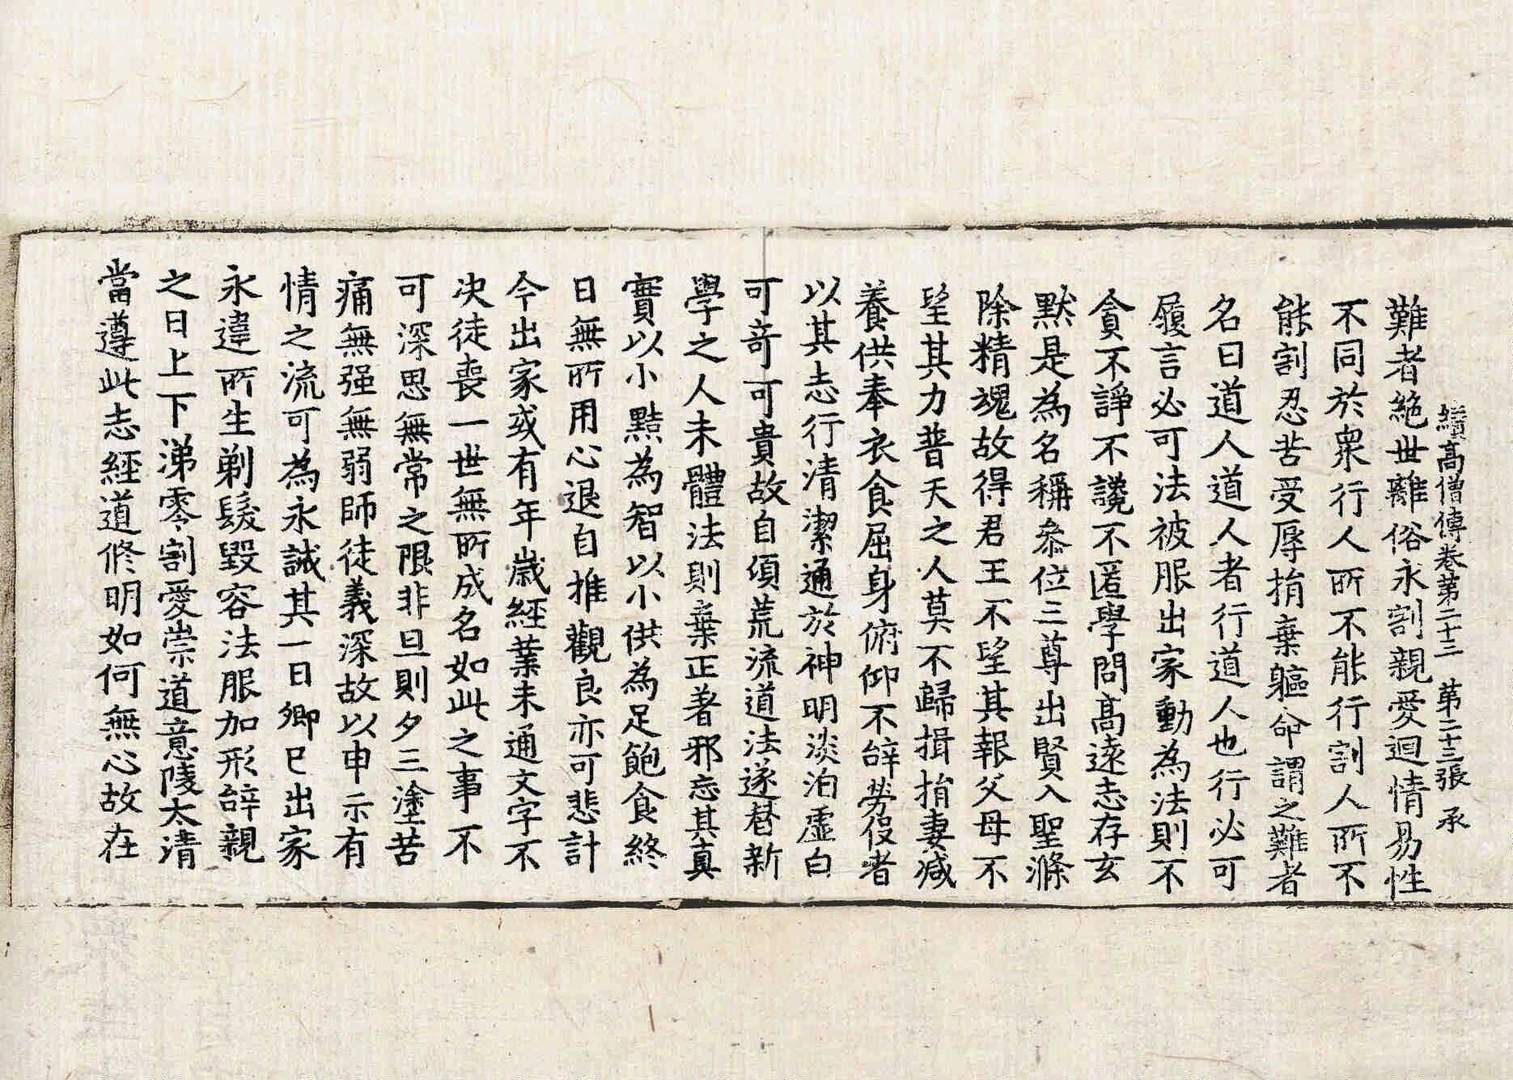 續高僧傳卷第二十三　第二十三張　承
難者絶世離俗永割親愛迴情易性
不同於衆行人所不能行割人所不
能割忍苦受辱捐棄軀命謂之難者
名曰道人道人者行道人也行必可
履言必可法被服出家動為法則不
貪不諍不讒不匿學問高遠志存玄
默是為名稱叅位三尊出賢入聖滌
除精魂故得君王不望其報父母不
望其力普天之人莫不歸揖捐妻减
養供奉衣食屈身俯仰不辝勞役者
以其志行清潔通於神明淡泊虛白
可奇可貴故自頃荒流道法遂替新
學之人未體法則棄正著邪忘其真
實以小黠為智以小供為足飽食終
日無所用心退自推觀良亦可悲計
今出家或有年歲經業未通文字不
决徒喪一世無所成名如此之事不
可深思無常之限非旦則夕三塗苦
痛無强無弱師徒義深故以申示有
情之流可為永誡其一曰卿已出家
永違所生剃髮毀容法服加形辝親
之日上下涕零割愛崇道意陵太清
當遵此志經道修明如何無心故在